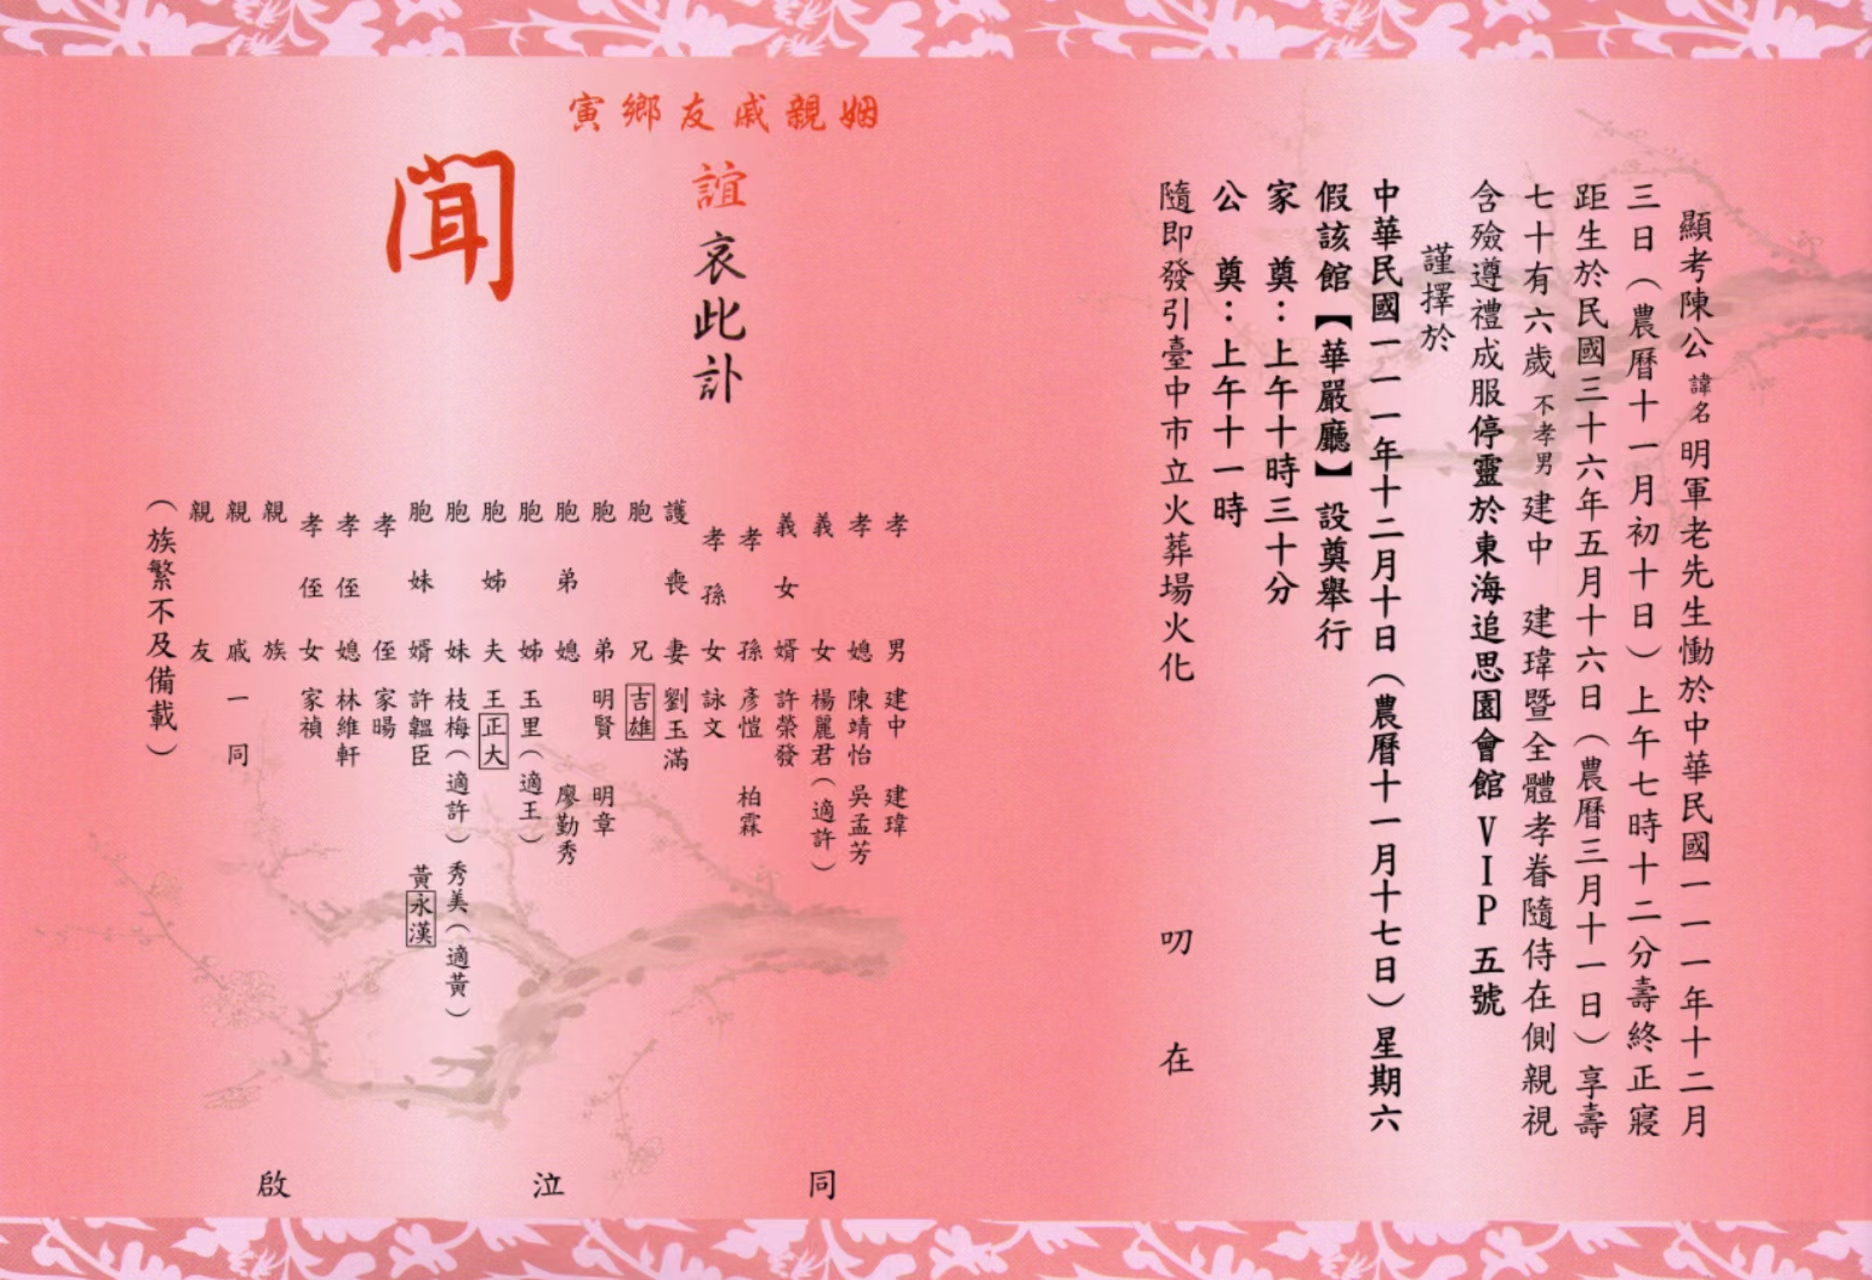 顯考陳公諱名明軍老先生慟於中華民國一一一年十二月
三日（農曆十一月初十日）上午七時十二分壽終正寢
距生於民國三十六年五月十六日（農曆三月十一日）享壽
七十有六歲不孝男建中 建瑋暨全體孝眷隨侍在側親視
含殮遵禮成服停靈於東海追思園會館VIP五號
謹擇於
中華民國一一一年十二月十日（農曆十一月十七日）星期六
假該館【華嚴廳】設奠舉行
家 奠：上午十時三十分
公 奠：上午十一時
隨即發引臺中市立火葬場火化
叨 在
姻親戚友鄉寅
誼 哀此訃
聞
孝男 建中 建瑋
孝媳 陳靖怡 吳孟芳
義女 楊麗君（適許）
義女婿 許榮發
孝孫 彥愷 柏霖
孝孫女 詠文
護喪妻 劉玉滿
胞兄 吉雄
胞弟 明賢 明章
胞弟媳 廖勤秀
胞姊 玉里（適王）
胞姊夫 王正大
胞妹 枝梅（適許）秀美（適黃）
胞妹婿 許韞臣 黃永漢
孝侄 家暘
孝侄媳 林維軒
孝侄女 家禎
親族
親戚一同
親友
（族繁不及備載）
同 泣 啟